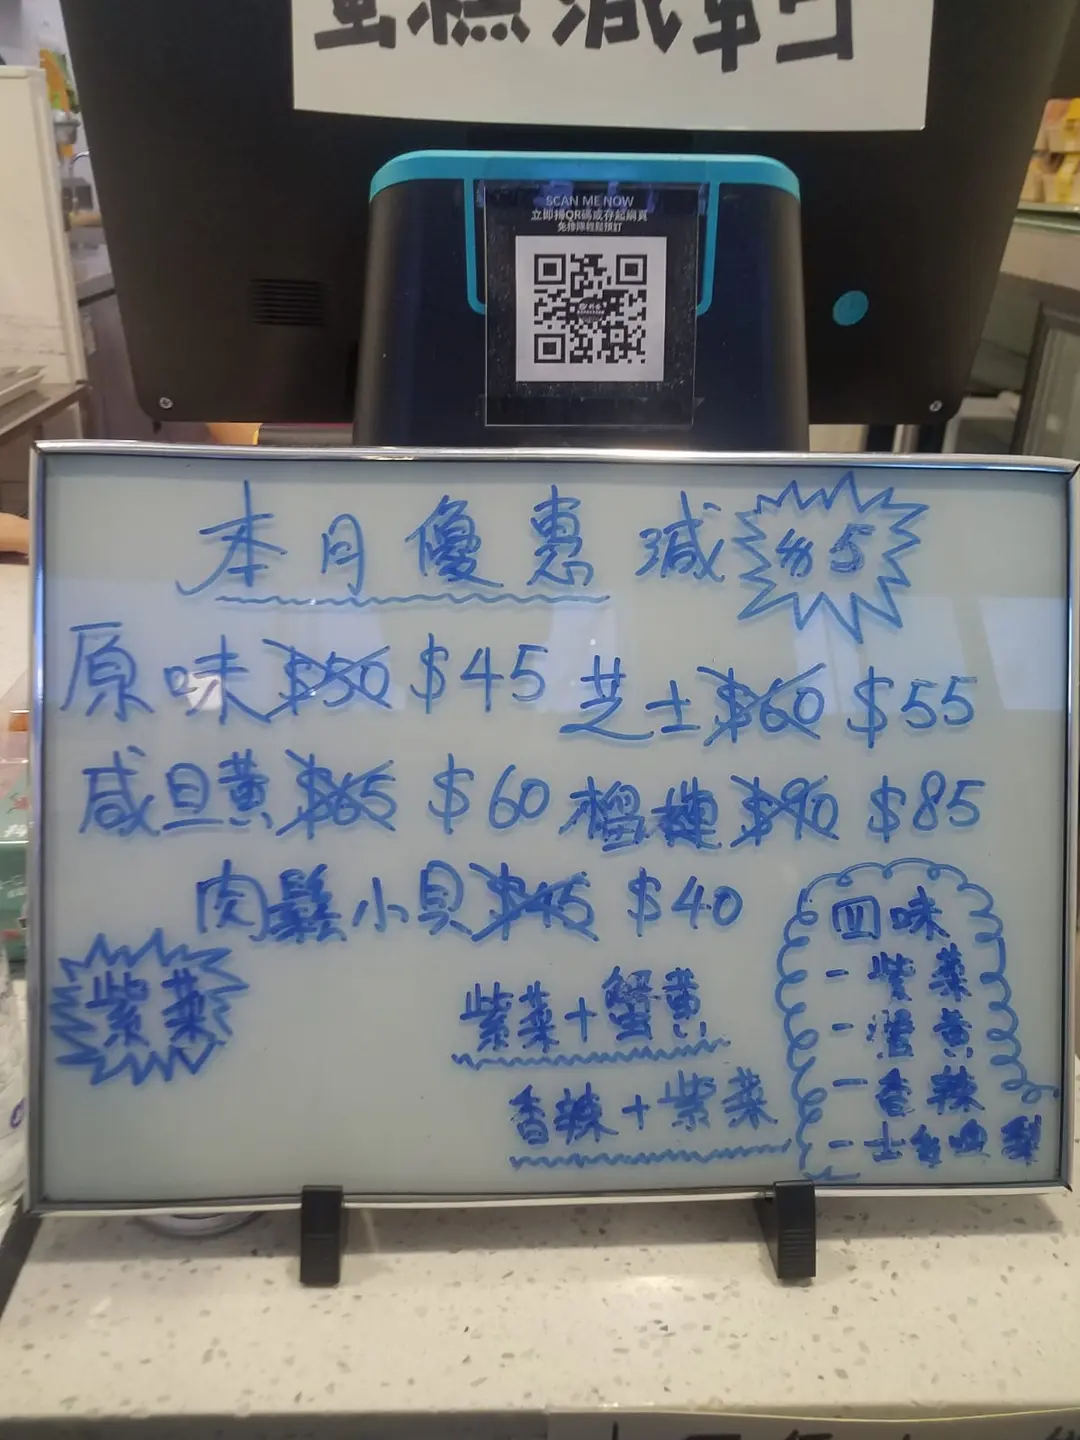 SCAN ME NOW
立即掃QR碼或存起網頁
免排隊輕鬆預訂
本月優惠 減 $5
原味 $50 $45 芝士 $60 $55
咸旦黃 $65 $60 榴槤 $90 $85
肉鬆小貝 $45 $40
紫菜
紫菜+蟹黃
香辣+紫菜
四味
- 紫菜
- 蟹黃
- 香辣
- 士多啤梨